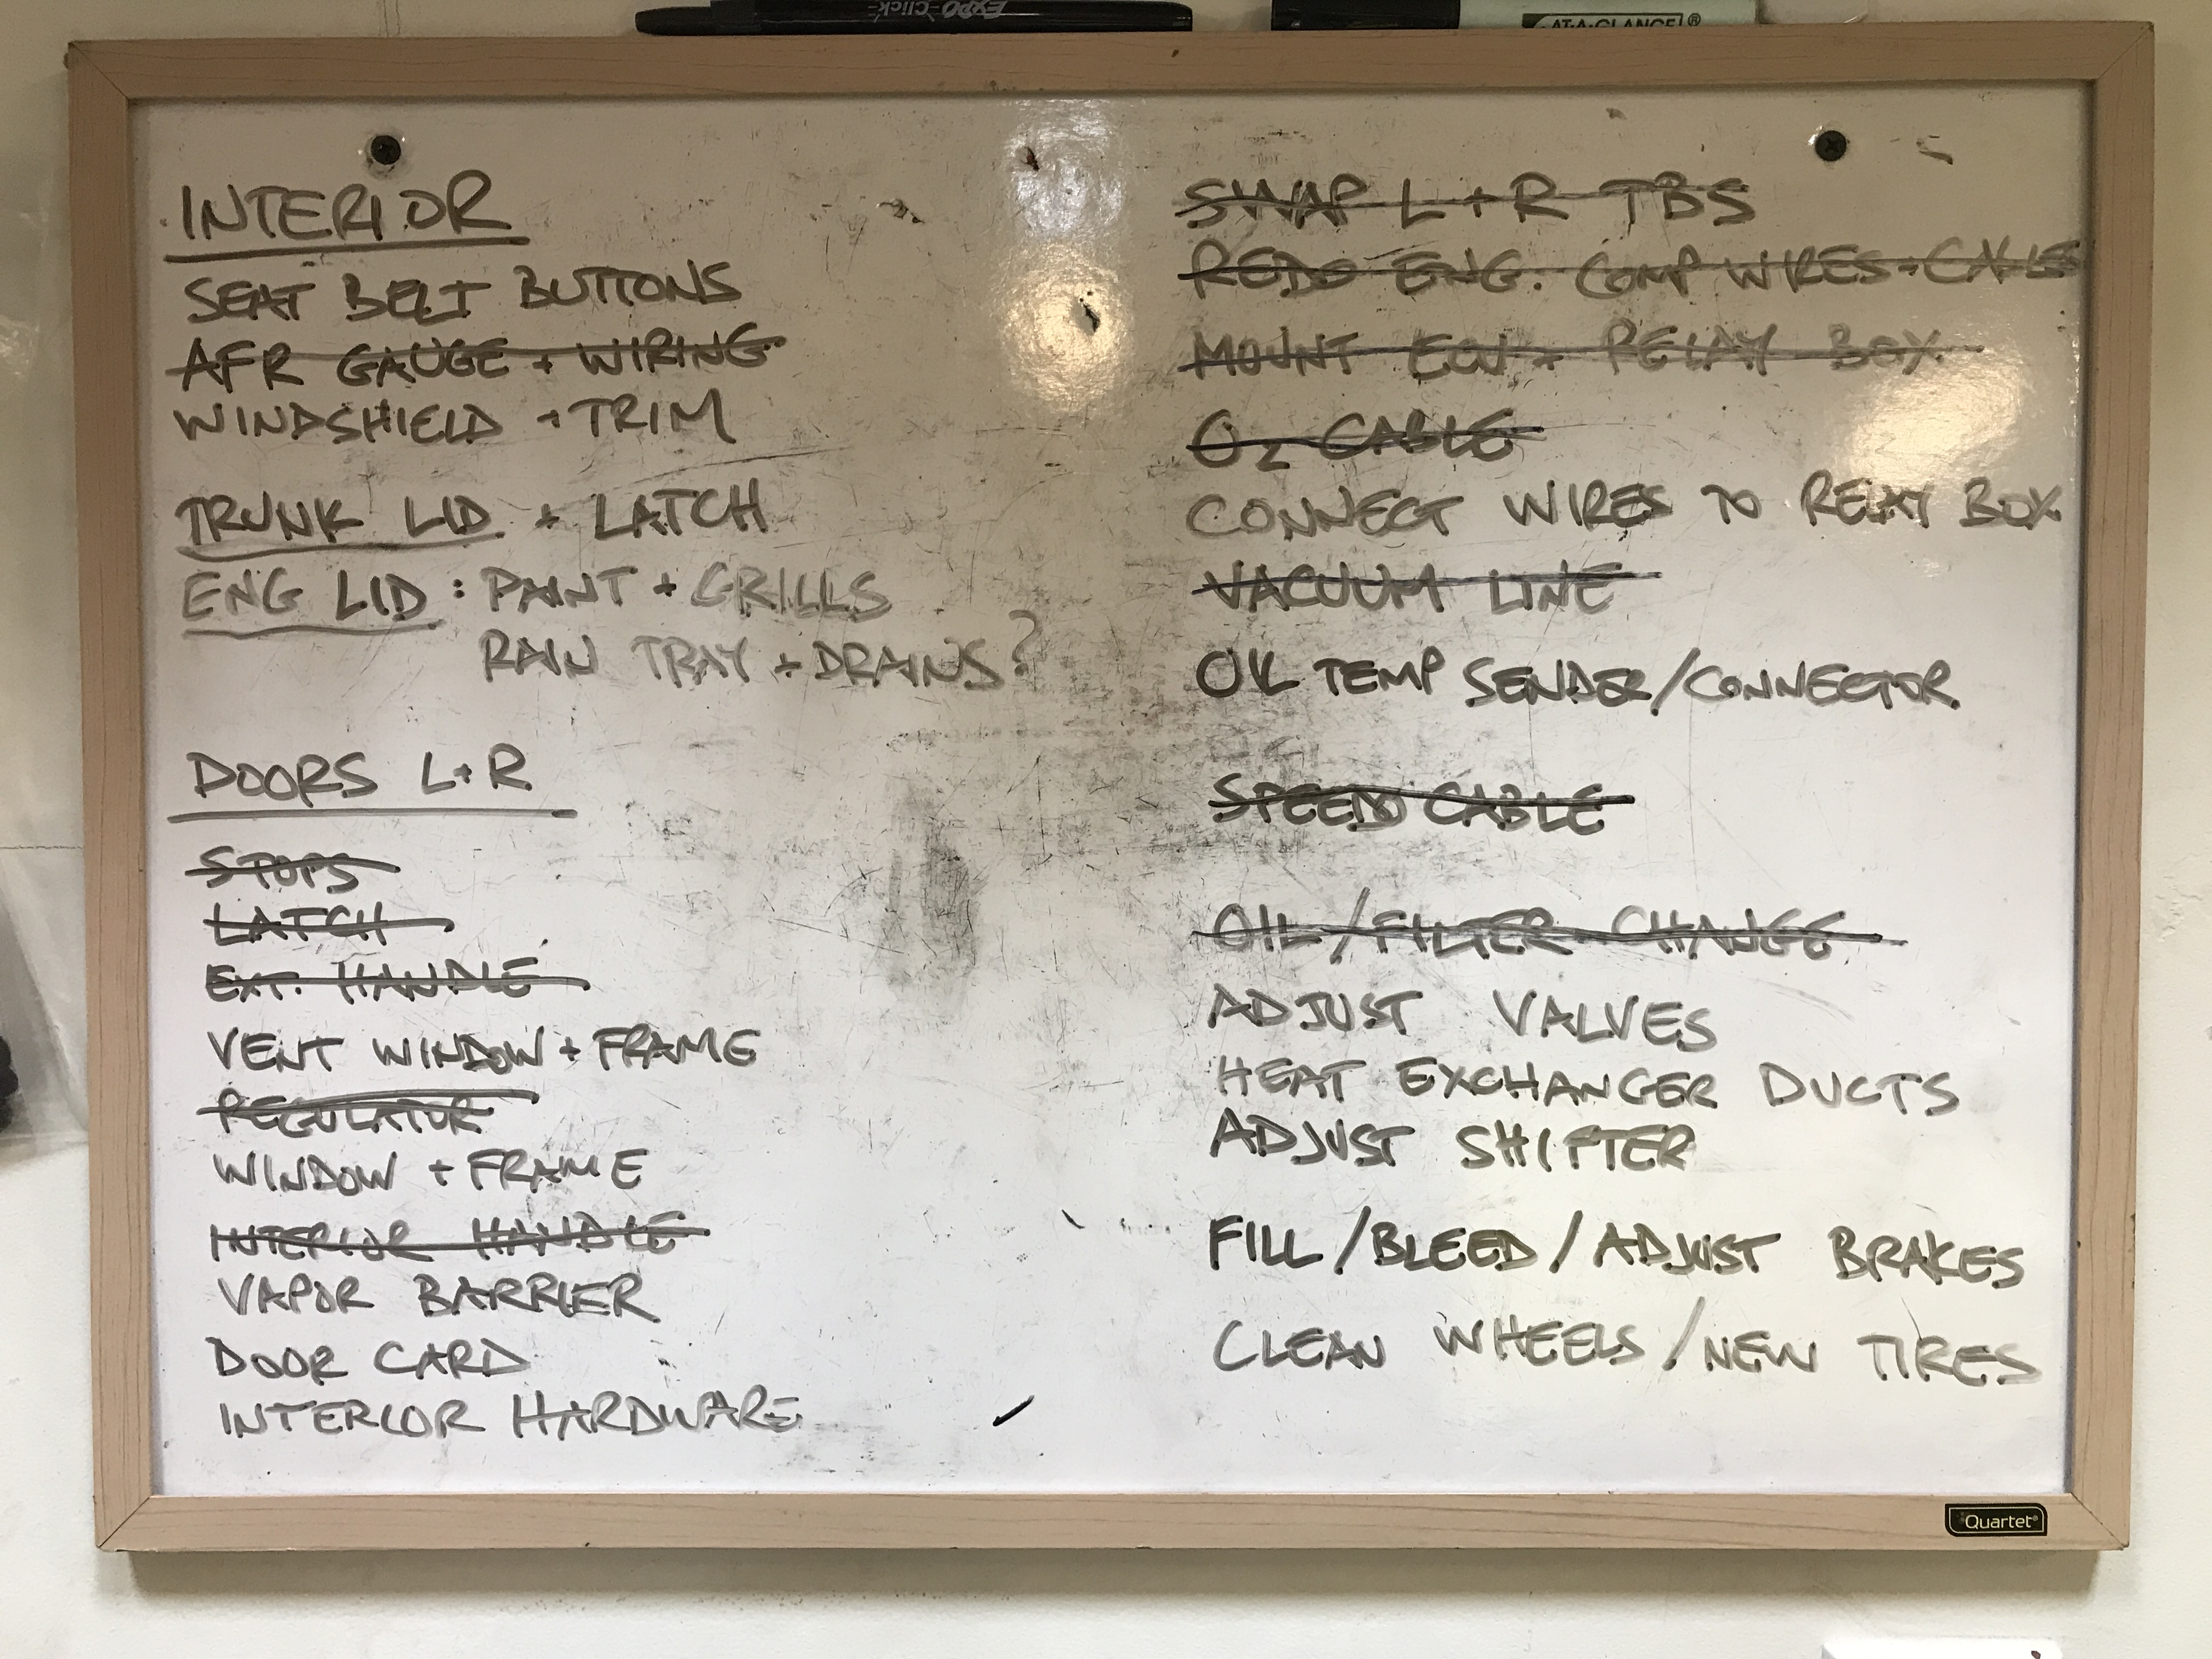 EXPO Click
AT-A-GLANCE®
INTERIOR
SEAT BELT BUTTONS
AFR GAUGE + WIRING
WINDSHIELD + TRIM
TRUNK LID + LATCH
ENG LID : PAINT + GRILLS
RAIN TRAY + DRAINS?
DOORS L+R
STOPS
LATCH
EXT. HANDLE
VENT WINDOW + FRAME
REGULATOR
WINDOW + FRAME
INTERIOR HANDLE
VAPOR BARRIER
DOOR CARD
INTERIOR HARDWARE
SWAP L + R TBS
REDO ENG. COMP WIRES + CABLES
MOUNT ECU + RELAY BOX
O2 CABLE
CONNECT WIRES TO RELAY BOX
VACUUM LINE
OIL TEMP SENDER/CONNECTOR
SPEEDO CABLE
OIL/FILTER CHANGE
ADJUST VALVES
HEAT EXCHANGER DUCTS
ADJUST SHIFTER
FILL/BLEED/ADJUST BRAKES
CLEAN WHEELS/NEW TIRES
Quartet®